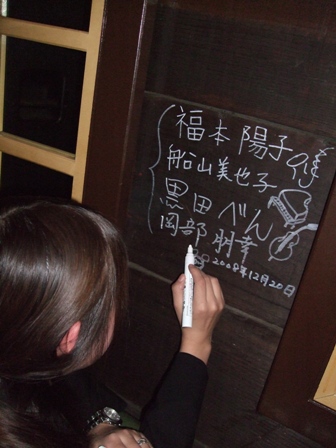 福本陽子
船山美也子
黒田べん
岡部朋幸
様
2008年12月20日